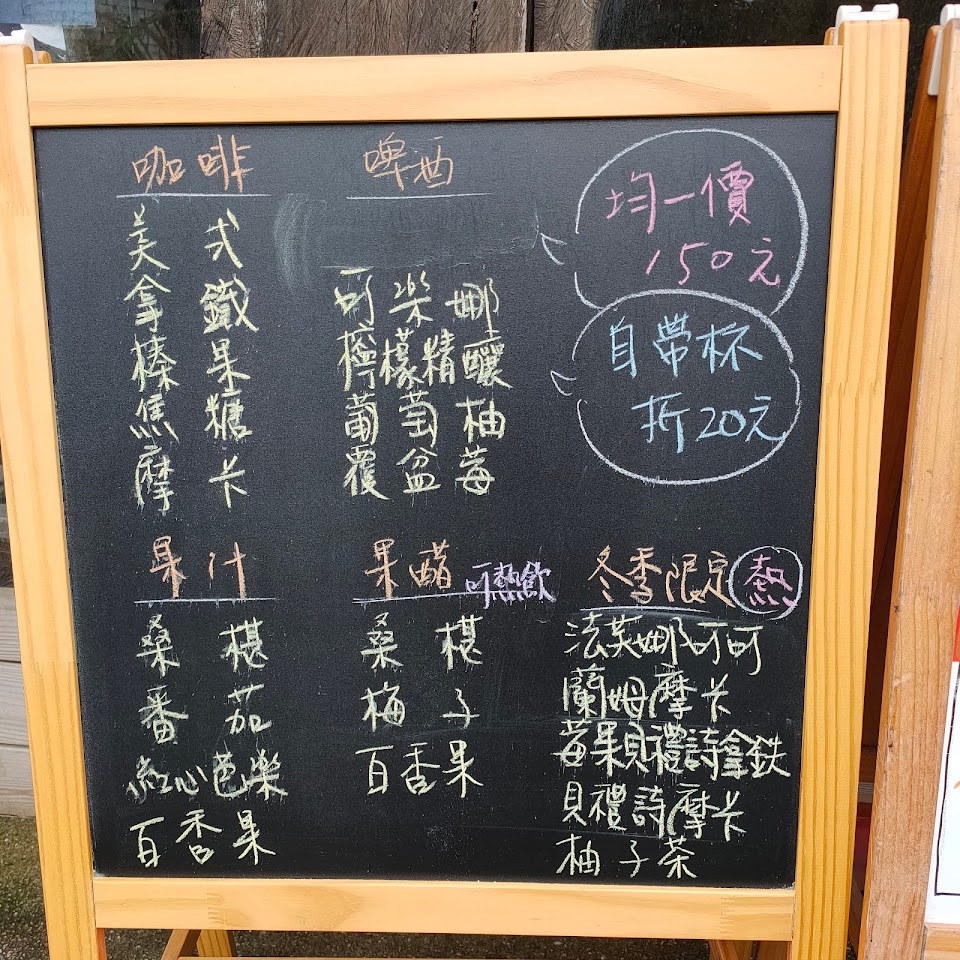 咖啡
美式
拿鐵
榛果
焦糖
摩卡
啤酒
可樂娜
檸檬精釀
葡萄柚
覆盆莓
均一價
150元
自帶杯
折20元
果汁
桑椹
番茄
紅心芭樂
百香果
果醋 可熱飲
桑椹
梅子
百香果
冬季限定 熱
法芙娜可可
蘭姆摩卡
莓果貝禮詩拿鉄
貝禮詩摩卡
柚子茶